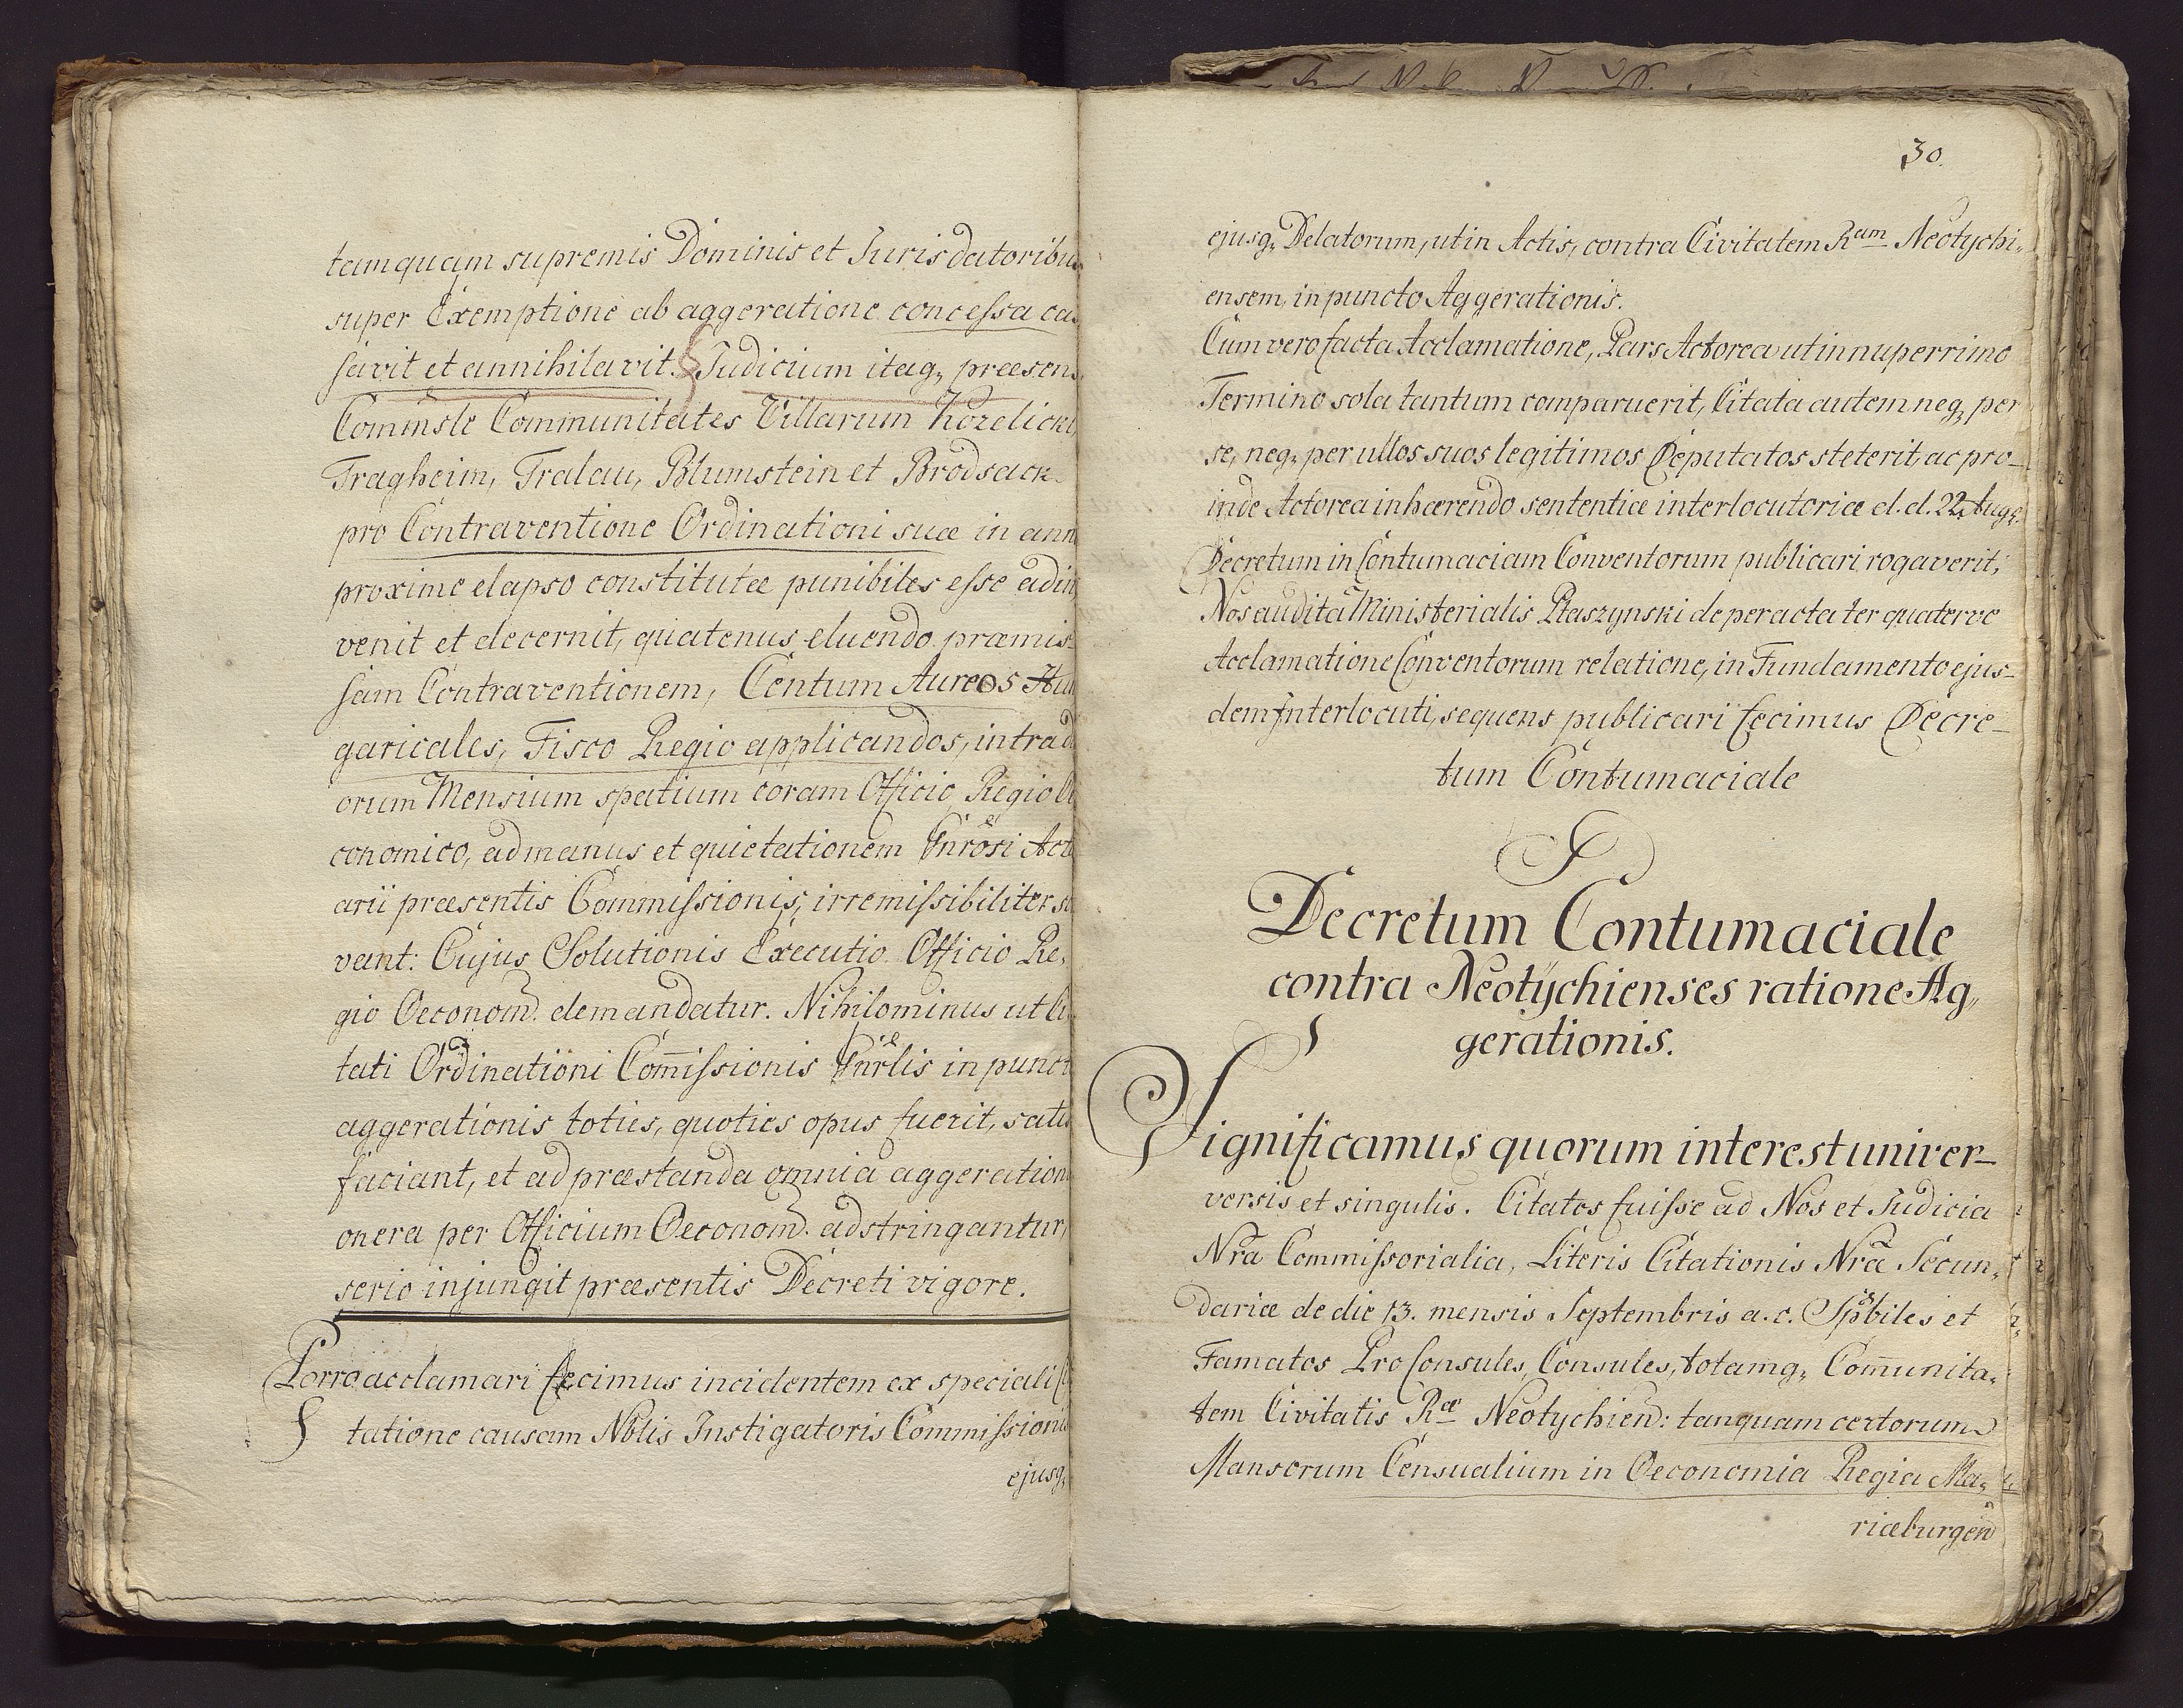 tamquam supremis Dominis et Juris datoribus
super Exemptione ab aggeratione concessa cas
savit et annihilavit. Judicium itaq, præsens
Com̃ssle Communitates Villarum Kozelicki
Tragheim, Tralau, Blumstein et Brodsack
pro Contraventione Ordinationi suæ in ann
proxime elapso constitutæ punibiles esse adin
venit et decernit, quatenus eluendo præmis-
sam Contraventionem, Centum Aureos Hun
garicales, Fisco Regio applicandos, intra d
orum Mensium spatium coram Officio Regio
conomico, ad manus et quietationem Gnrosi Act
arii præsentis Commissionis, irremissibiliter
vant: Cujus Solutionis Executio Officio Re,
gio Oeconom̃. demandatur. Nihilominus ut
tati Ordinationi Com̃issionis Gnrlis in punct
aggerationis toties, quoties opus fuerit, satis
faciant, et ad præstanda omnia aggeration
onera per Officium Oeconom̃. adstringantur,
serio injungit præsentis Decreti vigore.
Porro acclamari fecimus incidentem ex speciali
tatione causam Nobilis Instigatoris Commissionis
ejusq,
30.
ejusq, Delatorum, ut in Actis, contra Civitatem Ram Neotychi,
ensem, in puncto Aggerationis.
Cum vero facta Acclamatione, Pars Actorea ut in nuperrimo
Termino sola tantum comparuerit, Citata autem neq, per
se, neq, per ullos suos legitimos Deputatos steterit, ac pro-
inde Actorea inhærendo sententiæ interlocutoriæ d. d. 22. Aug.
Decretum in Contumaciam Conventorum publicari rogaverit;
Nos audita Ministerialis Ptaszynski de peracta ter quaterve
Acclamatione Conventorum relatione, in Fundamento ejus-
dem Interlocuti, sequens publicari fecimus Decre-
tum Contumaciale
Decretum Contumaciale
contra Neotychienses ratione Ag,
gerationis.
Significamus quorum interest univer-
versis et singulis. Citatos fuisse ad Nos et Judicia
Nrã Commissorialia, Literis Citationis Nræ̃ Secun,
dariæ de die 13. mensis Septembris a. c. Spbiles et
Famatos ProConsules, Consules, totamq, Com̃unita,
tem Civitatis Ræ Neotychien̄: tanquam certorum
Mansorum Censualium in Oeconomia Regia Ma,
riæburgen̄